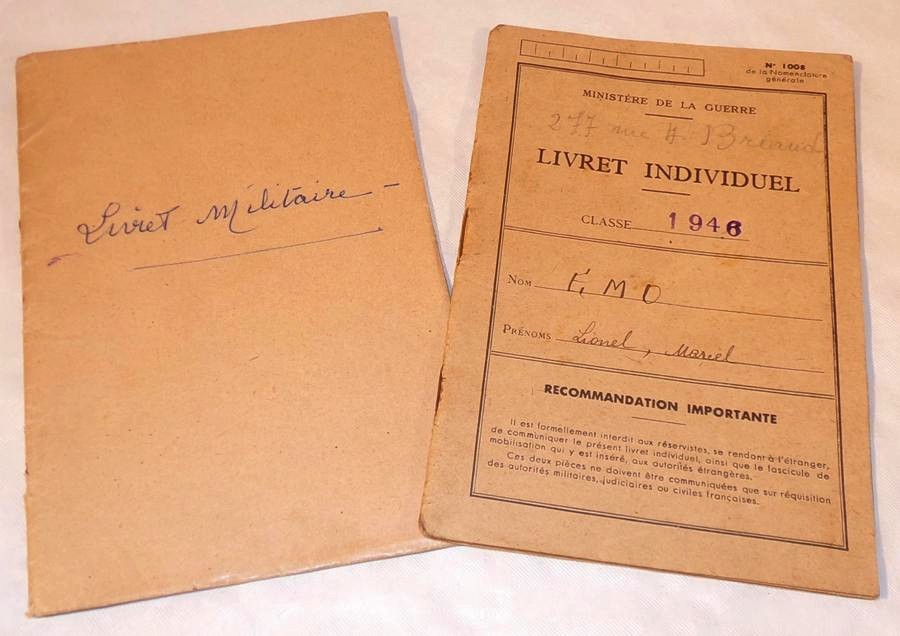 Livret Militaire -
N° 1008
de la Nomenclature
générale
MINISTÈRE DE LA GUERRE
277 rue A. Briand
LIVRET INDIVIDUEL
CLASSE 1946
NOM ÉMO
PRÉNOMS Lionel, Marcel
RECOMMANDATION IMPORTANTE
Il est formellement interdit aux réservistes, se rendant à l'étranger,
de communiquer le présent livret individuel, ainsi que le fascicule de
mobilisation qui y est inséré, aux autorités étrangères.
Ces deux pièces ne doivent être communiquées que sur réquisition
des autorités militaires, judiciaires ou civiles françaises.